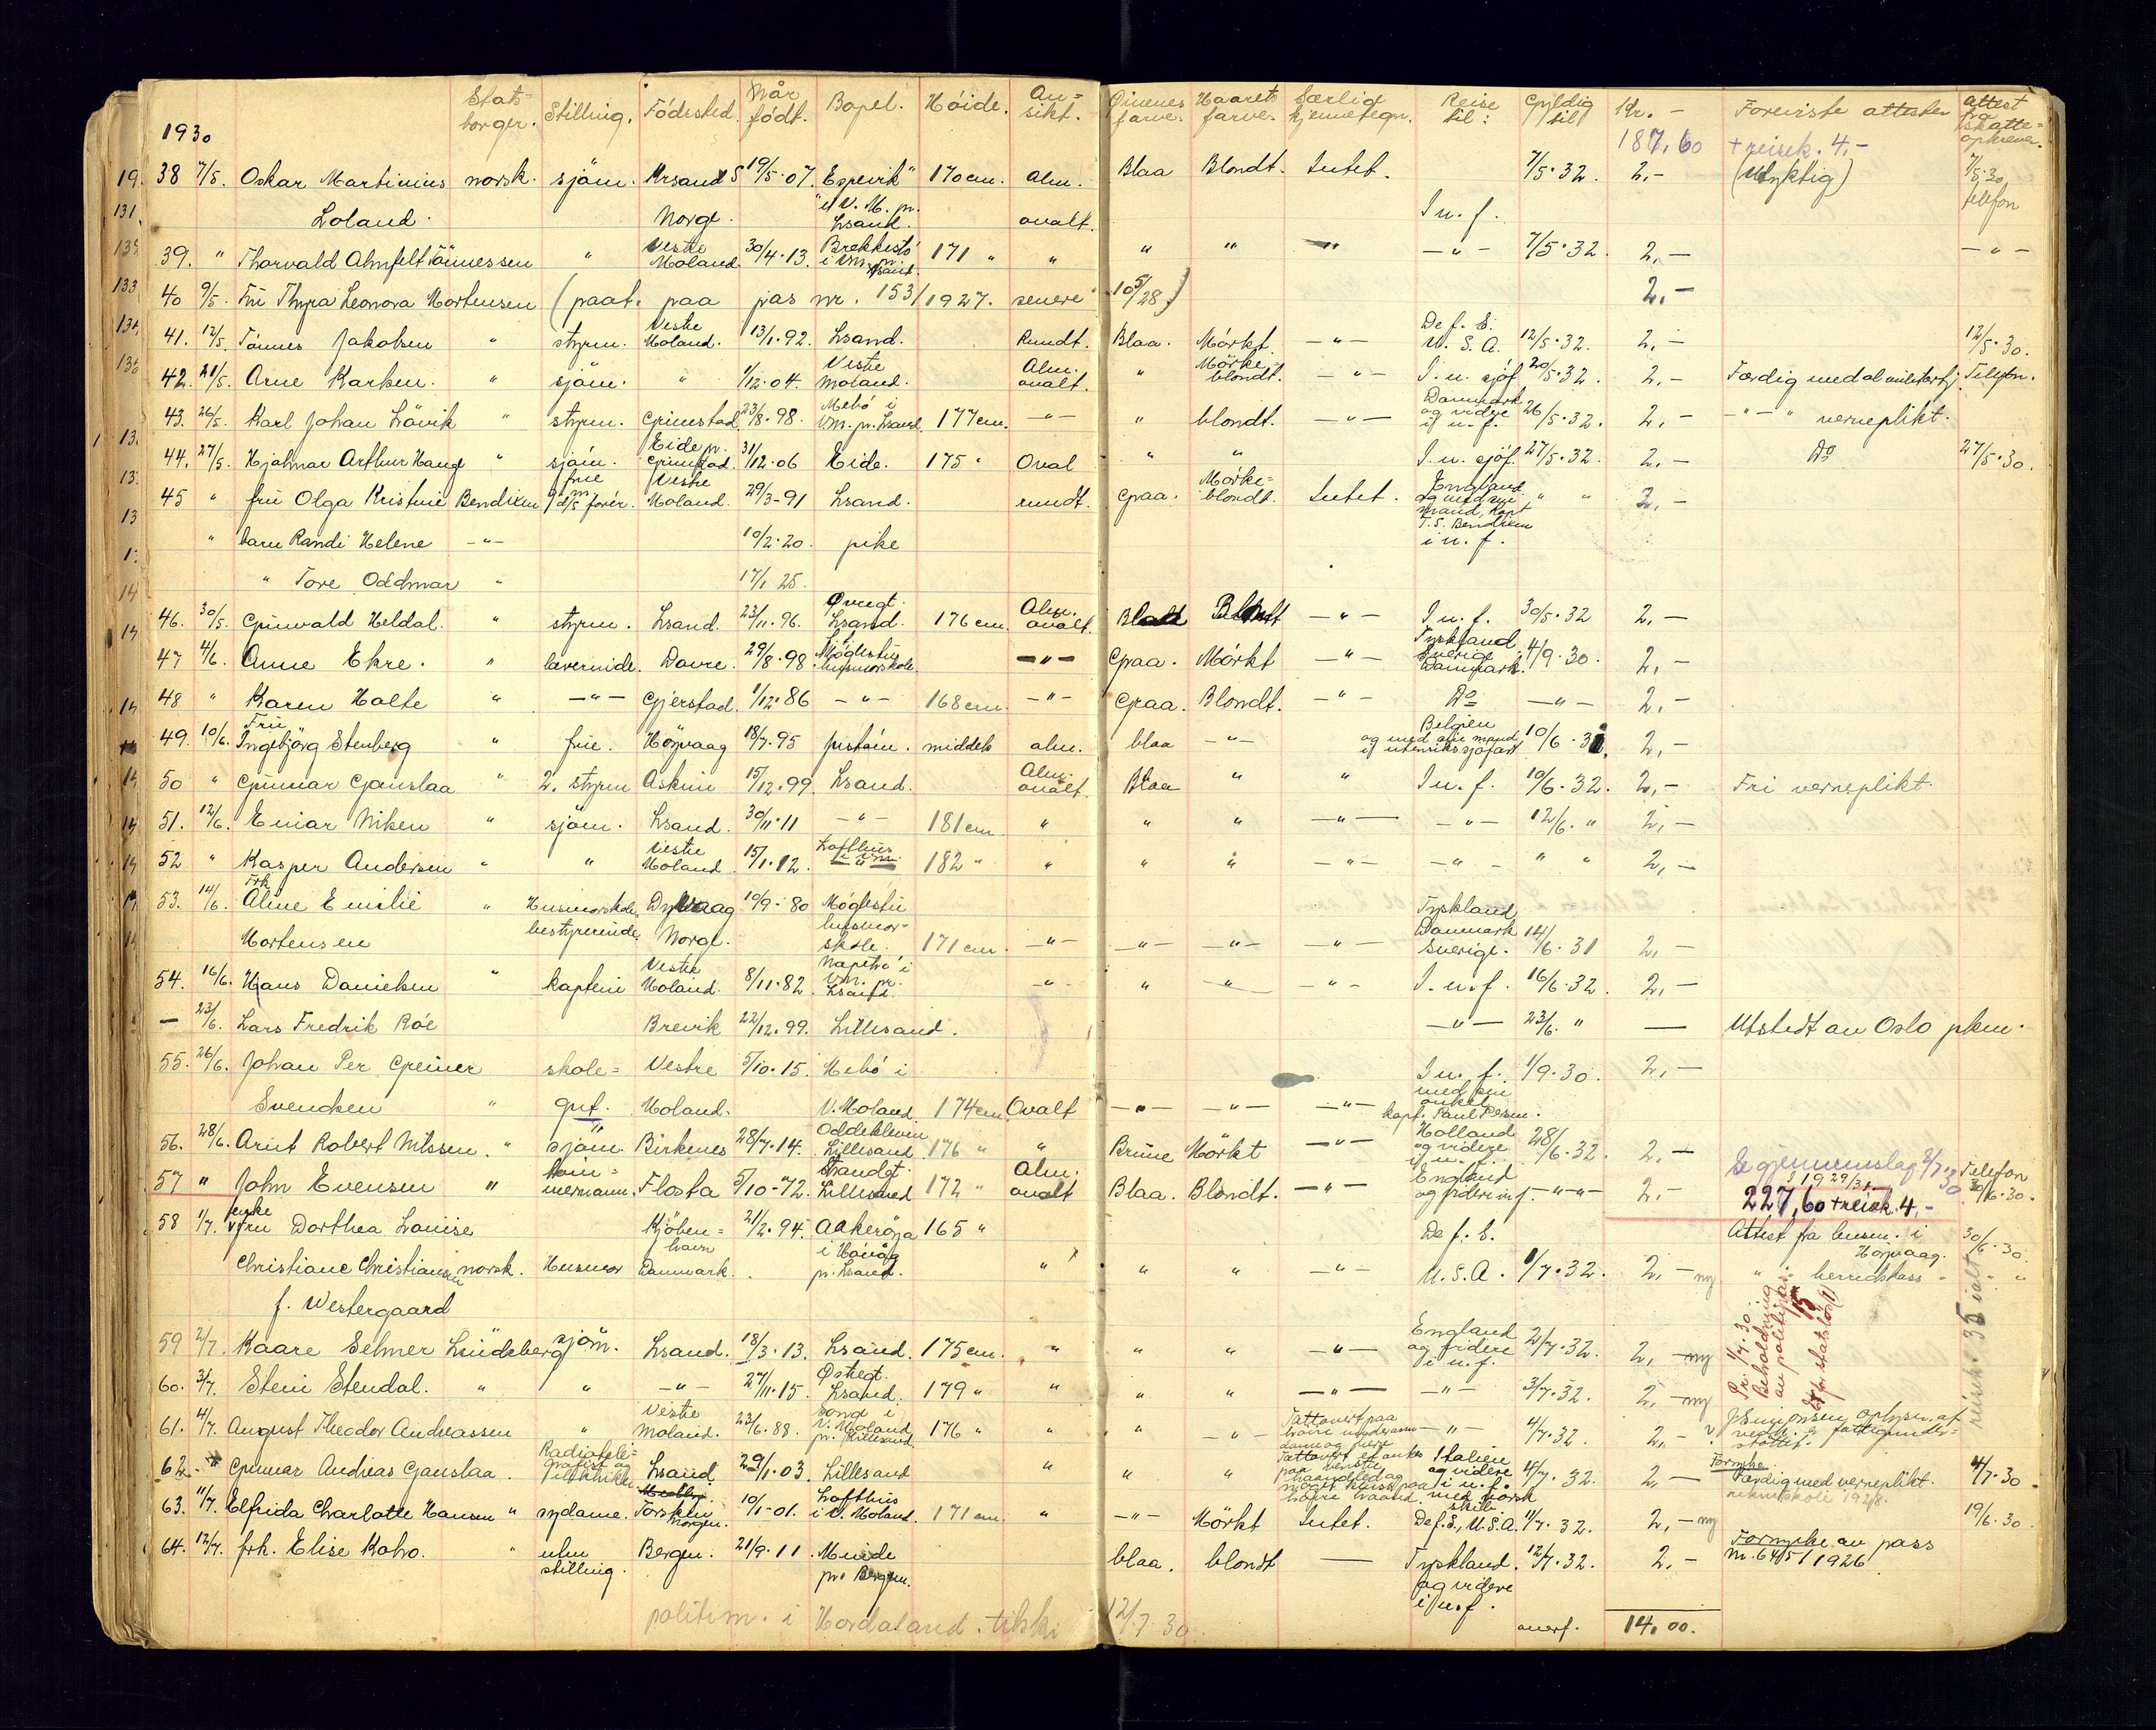 1930 Stats=borger. Stilling. Fødested. Når født. Bopel. Høide. An=sikt. Øinenes farve. Haarets farve. Særlig kjennetegn. Reise til: Gyldig til Kr. - Foreviste attester attest fra skatte=opkrever.
187,60 + reisek. 4,-
38 7/5. Oskar Martinius norsk. sjöm. Krsand S 19/5·07. Espevik 170 cm. Alm. Blaa Blondt. Intet. 7/5·32. 2,- (Utyktig) 7/5·30 telefon
Loland. Norge. i V. M. pr. Lsand. ovalt. I u. f.
39. " Thorvald Almfelt Tönnessen " Vestre Moland. 30/4·13. Brekkestö i V.M. pr. Lsand. 171 " " " " -"- -"- 7/5·32. 2,- -"-
40 9/5. Fru Thyra Leonora Mortensen (paat. paa pas nr. 153/1927. senere 10/5/28) 2,-
41. 12/5. Tönnes Jakobsen " styrm. Vestre Moland. 13/1·92. Lsand. Rundt. Blaa. Mörkt. -"- De f. S. U. S. A. 12/5·32. 2,- 12/5·30.
42. 21/5. Arne Karlsen. " sjöm. " 1/12·04. Vestre Moland. Alm. ovalt. " Mörke=blondt. -"- I. u. sjöf. 20/5·32. 2,- Færdig med al militærtj. Telefon.
43. 26/5. Karl Johan Lövik " styrm. Grimstad 23/8·98. Mebö i V.M. pr. Lsand. 177 cm. -"- " blondt. -"- Danmark og videre i u. f. 26/5·32. 2,- -"-" verneplikt.
44. 27/5. Hjalmar Arthur Hauge " sjöm. Eide pr. Grimstad. 31/12·06 Eide. 175 " Oval " " I. u. sjöf. 27/5·32. 2,- Do 27/5·30.
45 " fru Olga Kristine Bendixen frue Vestre Moland. 29/3-91 Lsand. rundt. Graa. Mörke=blondt. Intet. England og med sin mand, kapt T. S. Bendixen i u. f. " " 2,-
" barn Randi Helene -"- 10/2·20. pike
" Tore Oddmar " 17/1 25.
46. 30/5. Grinvald Heldal. " styrm. Lsand. 23/11·96. Øvregt. Lsand. 176 cm. Alm. ovalt. Blaa Blondt -"- I u. f. 30/5·32 2,-
47 4/6. Anne Ekre. " lærerinde. Dovre. 29/8·98 Möglestu husmorskole. -"- Graa. Mörkt -"- Tyskland Sverige Danmark. 4/9·30. 2,-
48 " Karen Holte " -"- Gjerstad. 1/12·86 -"- 168 cm. -"- Graa. Blondt. -"- Do -"- 2,-
49. 10/6. Fru Ingebjörg Stenberg " frue. Hövaag 18/7·95 Justöen. middels alm. blaa -"- Belgien og med sin mand i utenrikssjöfart 10/6·32. 2,-
50 " Gunnar Gauslaa " 2. styrm Askim 15/12·99. Lsand. Alm. ovalt. Blaa " " I u. f. 10/6·32. 2,- Fri verneplikt.
51. 12/6. Einar Niksen " sjöm. Lsand. 30/11·11 -"- 181 cm. " " " -"- -"- 12/6. " 2,-
52 " Kasper Andersen " " Vestre Moland 15/1·12. Lofthus i V.M. 182 " " " " -"- -"- " " 2,-
53. 14/6. Frk Aline Emilie " Husmorskole Dybvaag 19/9-80 Möglestu Tyskland
Mortensen bestyrerinde. Norge. husmor=skole. 171 cm. -"- -"- -"- -"- Danmark Sverige. 14/6·31 2,-
54. 16/6. Hans Danielsen " kaptein Vestre Moland. 8/11·82. i V.M. pr. Lsand. -"- " -"- -"- I. u. f. 16/6·32. 2,-
— 23/6. Lars Fredrik Röe Brevik 22/12·99. Lillesand. -"- 23/6. " — Utstedt av Oslo pkm.
55. 26/6. Johan Per Greiner skole= Vestre 5/10·15. Mebö i I u. f. 1/9·30. 2,-
Svendsen " gut. Moland. V. Moland 174 cm. Ovalt -"- -"- -"- med sin onkel kapt. Paul Persen.
56. 28/6. Arnt Robert Nilssen. " sjöm. Birkenes 28/7·14. Oddekleven Lillesand. 176 " " Brune Mörkt -"- Holland og videre i u. f. 28/6·32. 2,-
57 " John Evensen " Flosta 5/10-72. Strandgt. Lillesand 172 " Alm. ovalt Blaa. Blondt. -"- England og videre i u f. -"- 2,- Se gjennemslag 2/7·30 Telefon 30/6·30.
227,60 + reisek. 4,-
58 1/7. fru Dorthea Louise Kjöben=havn 21/2·94. Aakeröya 165 " De f. S. Attest fra lensm. i Hövaag. 30/6·30
Christiane Christiansen norsk. Husmor Danmark. i Hövåg pr. Lsand. " " " -"- U. S. A. 1/7·32. 2,- ny " herredskass " "
f. Westergaard
Pr. 1/7·30 Beholdning av politipas: 15
reisek. 35 ialt
59 2/7. Kaare Selmer Lindeberg sjöm. Lsand. 18/3·13. Lsand. 175 cm. " " " -"- England og videre i u. f. 2/7·32. 2,- ny
60. 3/7. Stein Stendal. " " -"- 27/11·15. Østregt. Lsand. 179 " " " " -"- -"- 3/7·32. 2,- ny
61. 4/7. August Theodor Andreassen " Vestre Moland. 23/6·88. Songe i V. Moland pr. Lillesand. 176 " " " -"- Tattovert paa höire underarm -"- 4/7·32. 2,-
62. " Gunnar Andreas Gauslaa. Radiotele=grafist og Lsand 29/1·03. Lillesand " " " Tattovert et anker paa venstre haandled og höire haand Italien og videre i u. f. med norsk skib 4/7·32. 2,- Fornyelse Færdig med verneplikt. 4/7·30.
63. 11/7. Elfrida Charlotte Hansen " sydame. Torsken Norge. 10/1-01. Lofthus i V. Moland. 171 cm. " -"- Mörkt Intet. De f. S., U.S.A. 11/7·32. 2,- ny 19/6·30.
64. 12/7. frk. Elise Kahrs. " uten stilling. Bergen. 21/9·11. Minde pr. Bergen. blaa. blondt — Tyskland og videre i u. f. 12/7·32. 2,- Fornyelse av pass nr. 645/1926
politim. i Hordaland. tilski 12/7·30. overf. 14,00.